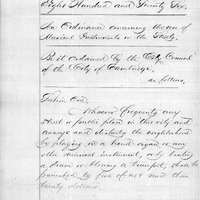 Eight Hundred and Twenty Two.
An Ordinance concerning the use of
Musical Instruments in the Streets.
Be it ordained by the City Council
of the City of Cambridge,
as follows,
Section One.
Whoever frequents any
street or public place in this city and
annoys and disturbs the neighborhood
by playing on a hand organ or any
other musical instrument, or by beating
a drum or blowing a trumpet, shall be
punished by fine of not more than
twenty dollars.